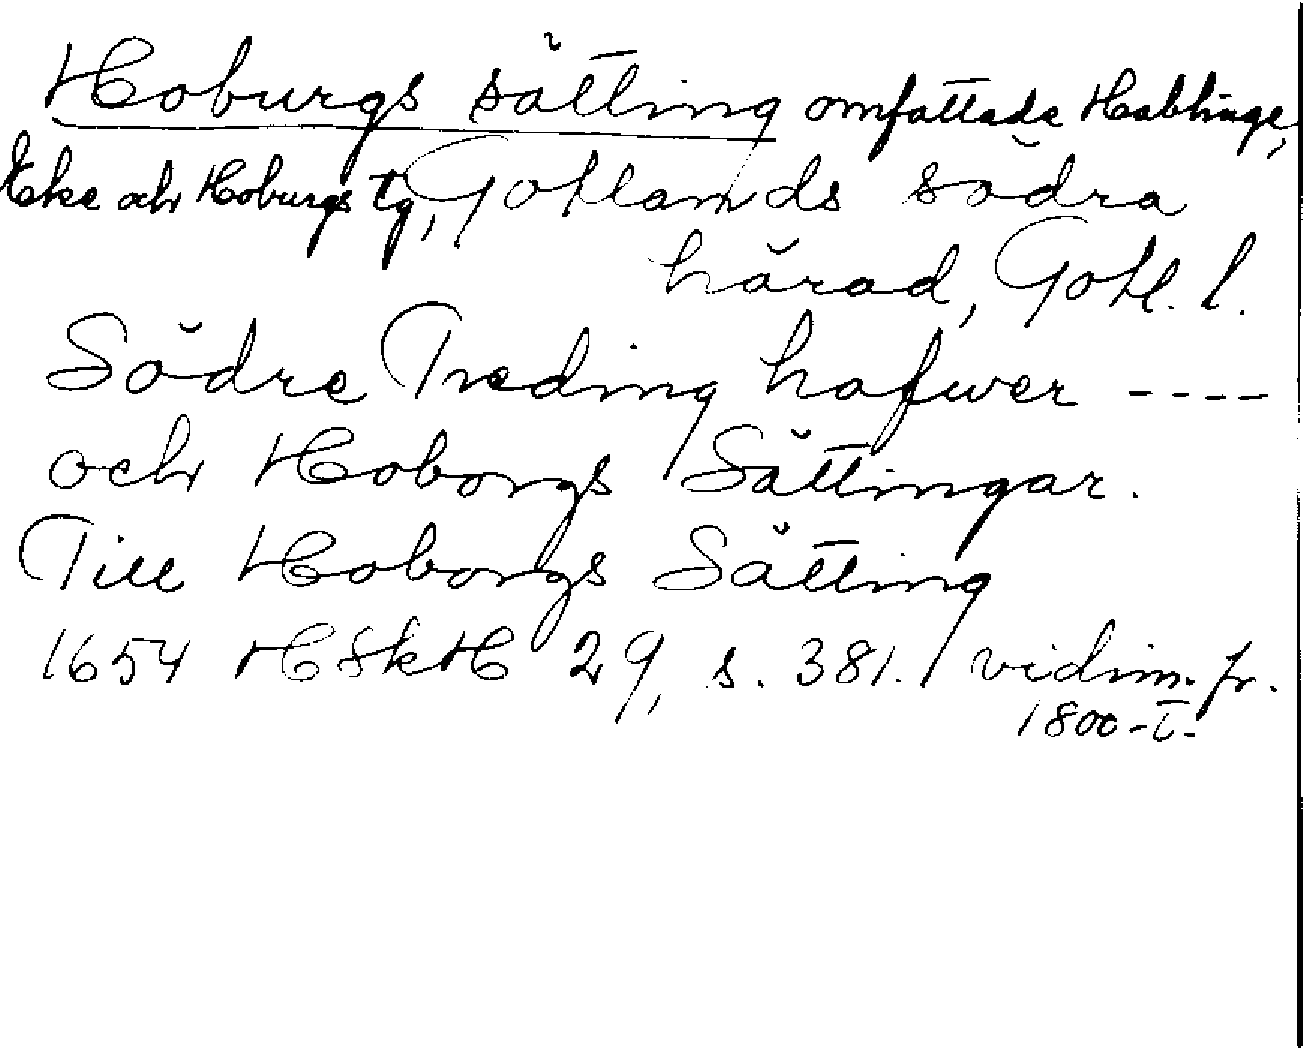 Hoburgs sätting omfattade Hablinge,
Eke och Hoburgs tg, Gotlands södra
härad, Gotl. l.
Södre Treding hafwer ----
och Hoborgs Sättingar.
Till Hoborgs Sätting
1654 HSkH 29, s. 381. / vidim. fr.
1800-t.